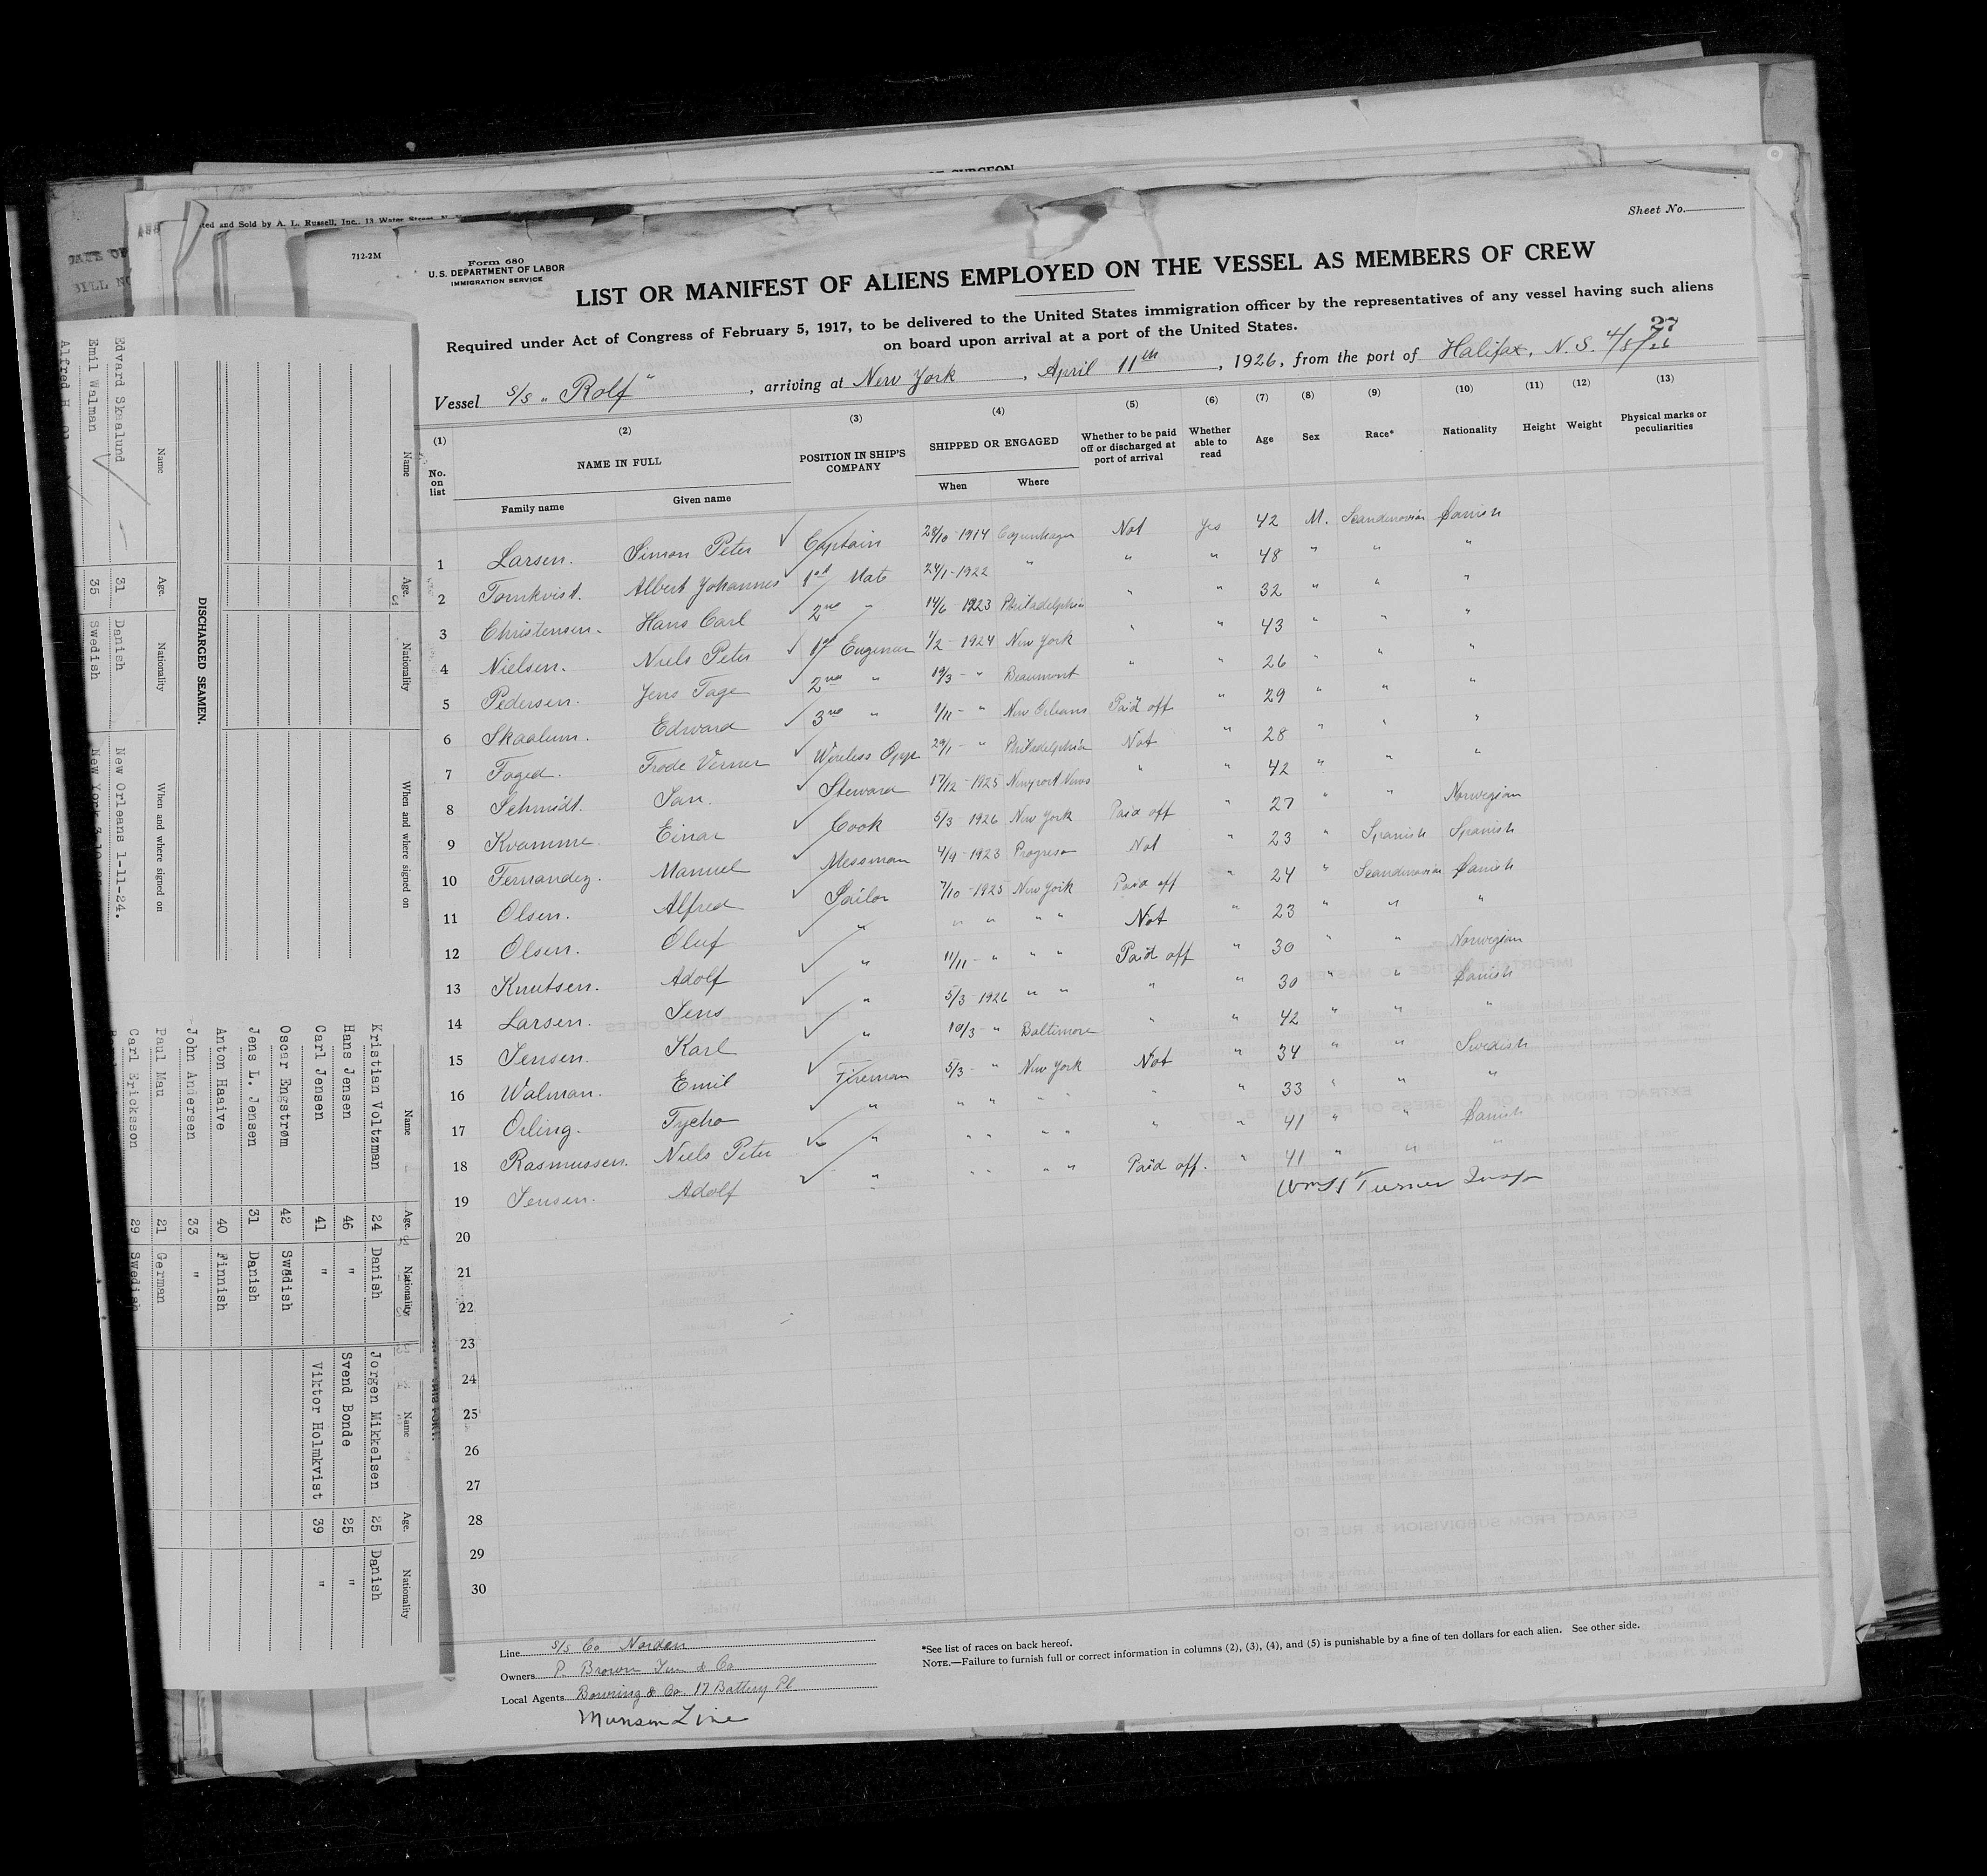 OF SURGEON
ted and Sold by A. L. Russell, Inc., 13 Water Street, N. Y.
Sheet No.
712-2M
Form 680
U.S. DEPARTMENT OF LABOR
IMMIGRATION SERVICE
LIST OR MANIFEST OF ALIENS EMPLOYED ON THE VESSEL AS MEMBERS OF CREW
Required under Act of Congress of February 5, 1917, to be delivered to the United States immigration officer by the representatives of any vessel having such aliens
on board upon arrival at a port of the United States.
27
Vessel S/S "Rolf", arriving at New York, April 11th, 1926, from the port of Halifax, N. S. 4/8/26
(1) (2) (3) (4) (5) (6) (7) (8) (9) (10) (11) (12) (13)
No. on list NAME IN FULL POSITION IN SHIP'S COMPANY SHIPPED OR ENGAGED Whether to be paid off or discharged at port of arrival Whether able to read Age Sex Race* Nationality Height Weight Physical marks or peculiarities
Family name Given name When Where
1 Larsen. Simon Peter Captain 28/10-1914 Copenhagen Not Yes 42 M. Scandinavian Danish
2 Tornkvist. Albert Johannes 1st Mate 24/1-1922 " " " 48 " " "
3 Christensen. Hans Carl 2nd " 14/6-1923 Philadelphia " " 32 " " "
4 Nielsen. Niels Peter 1st Engineer 1/2-1924 New York " " 43 " " "
5 Pedersen. Jens Tage 2nd " 19/3-" Beaumont " " 26 " " "
6 Skaalum. Edward 3rd " 1/11-" New Orleans Paid off " 29 " " "
7 Faged. Frode Verner Wireless Opr. 29/1-" Philadelphia Not " 28 " " "
8 Schmidt. Jan. Steward 17/12-1925 Newport News " " 42 " " "
9 Kvamme. Einar Cook 5/3-1926 New York Paid off " 27 " " Norwegian
10 Fernandez. Manuel Messman 4/9-1923 Progreso Not " 23 " Spanish Spanish
11 Olsen. Alfred Sailor 7/10-1925 New York Paid off " 24 " Scandinavian Danish
12 Olsen. Oluf " " " " " Not " 23 " " "
13 Knutsen. Adolf " 11/11-" " " Paid off " 30 " " Norwegian
14 Larsen. Jens " 5/3-1926 " " " " 30 " " Danish
15 Jensen. Karl " 10/3-" Baltimore " " 42 " " "
16 Walman. Emil Fireman 5/3-" New York Not " 34 " " Swedish
17 Orling. Tycho " " " " " " " 33 " " "
18 Rasmussen. Niels Peter " " " " " " " 41 " " Danish
19 Jensen. Adolf " " " " " Paid off. " 41 " " "
Turner
20
21
22
23
24
25
26
27
28
29
30
Line S/S Co Norden
Owners P. Brown Jun & Co
Local Agents Bowring & Co. 17 Battery Pl.
Munson Line
*See list of races on back hereof.
NOTE.—Failure to furnish full or correct information in columns (2), (3), (4), and (5) is punishable by a fine of ten dollars for each alien. See other side.
Name Age. Nationality When and where signed on
DISCHARGED SEAMEN.
Name Age. Nationality When and where signed on
Edvard Skaalund 31 Danish New Orleans 1-11-24.
Emil Walman 35 Swedish New York
Alfred H
Name Age. Nationality Name Age. Nationality
Kristian Voltzman 24 Danish Jorgen Mikkelsen 25 Danish
Hans Jensen 46 " Svend Bonde 25 "
Carl Jensen 41 " Viktor Holmkvist 39 "
Oscar Engstrøm 42 Swedish
Jens L. Jensen 31 Danish
Anton Haaive 40 Finnish
John Andersen 33 "
Paul Mau 21 German
Carl Ericksson 29 Swedish